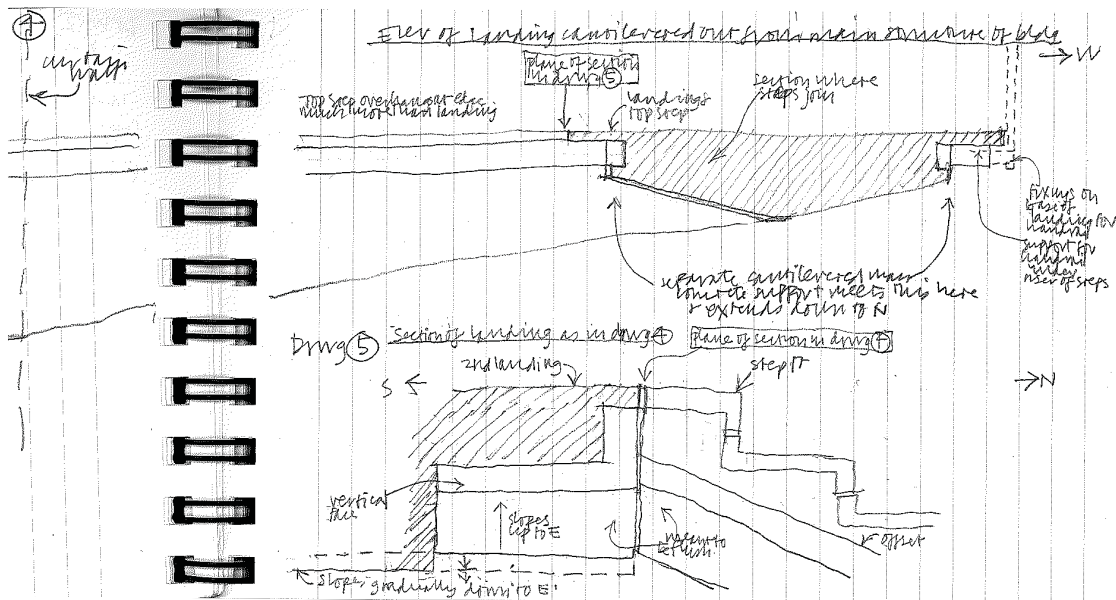 4
curtain
wall
Elev of landing cantilevered out from main structure of bldg
→ W
plane of section
in drwg 5
top step overhang at edge
much more than landing
landings
top step
section where
steps join
fixings on
base of
landing for
handrail
support for
handrail
under
riser of steps
separate cantilevered mass
concrete support meets this here
& extends down to N
Drwg 5
Section of landing as in drwg 4
plane of section in drwg 4
2nd landing
step 17
S ←
→ N
vertical
face
slopes
up to E
meant to
be flush
offset
slopes gradually down to E